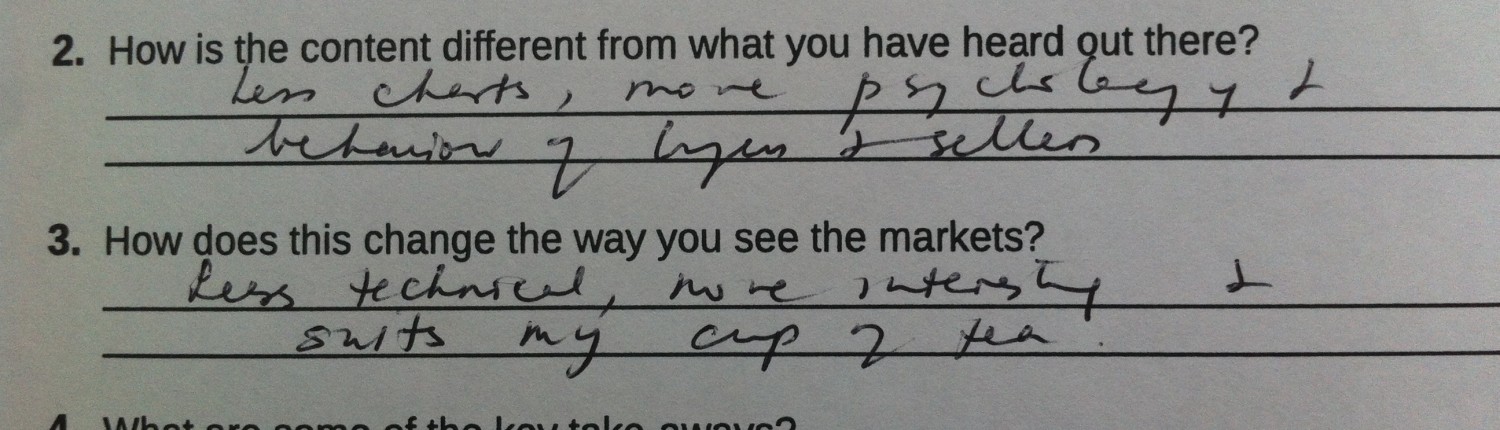 2. How is the content different from what you have heard out there?
Less charts, more psychology &
behaviour of buyers & sellers
3. How does this change the way you see the markets?
Less technical, more interesting &
suits my cup of tea.
4. What are some of the key take aways?